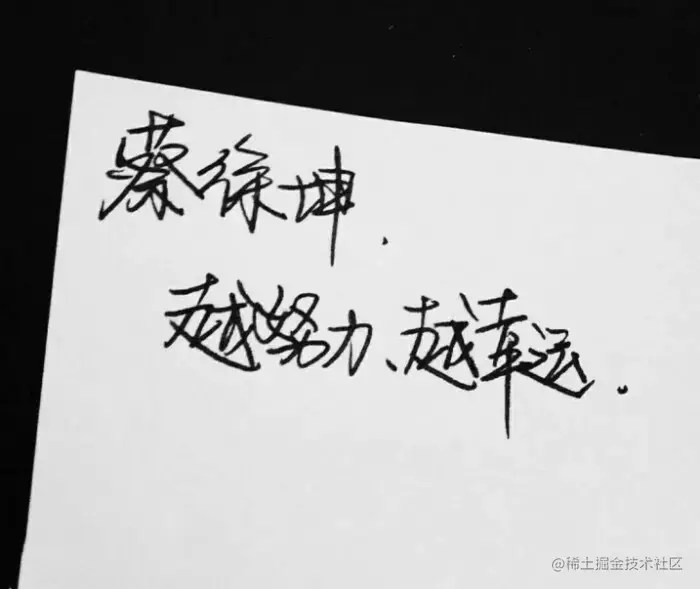 蔡徐坤.
越努力、越幸运.
@稀土掘金技术社区